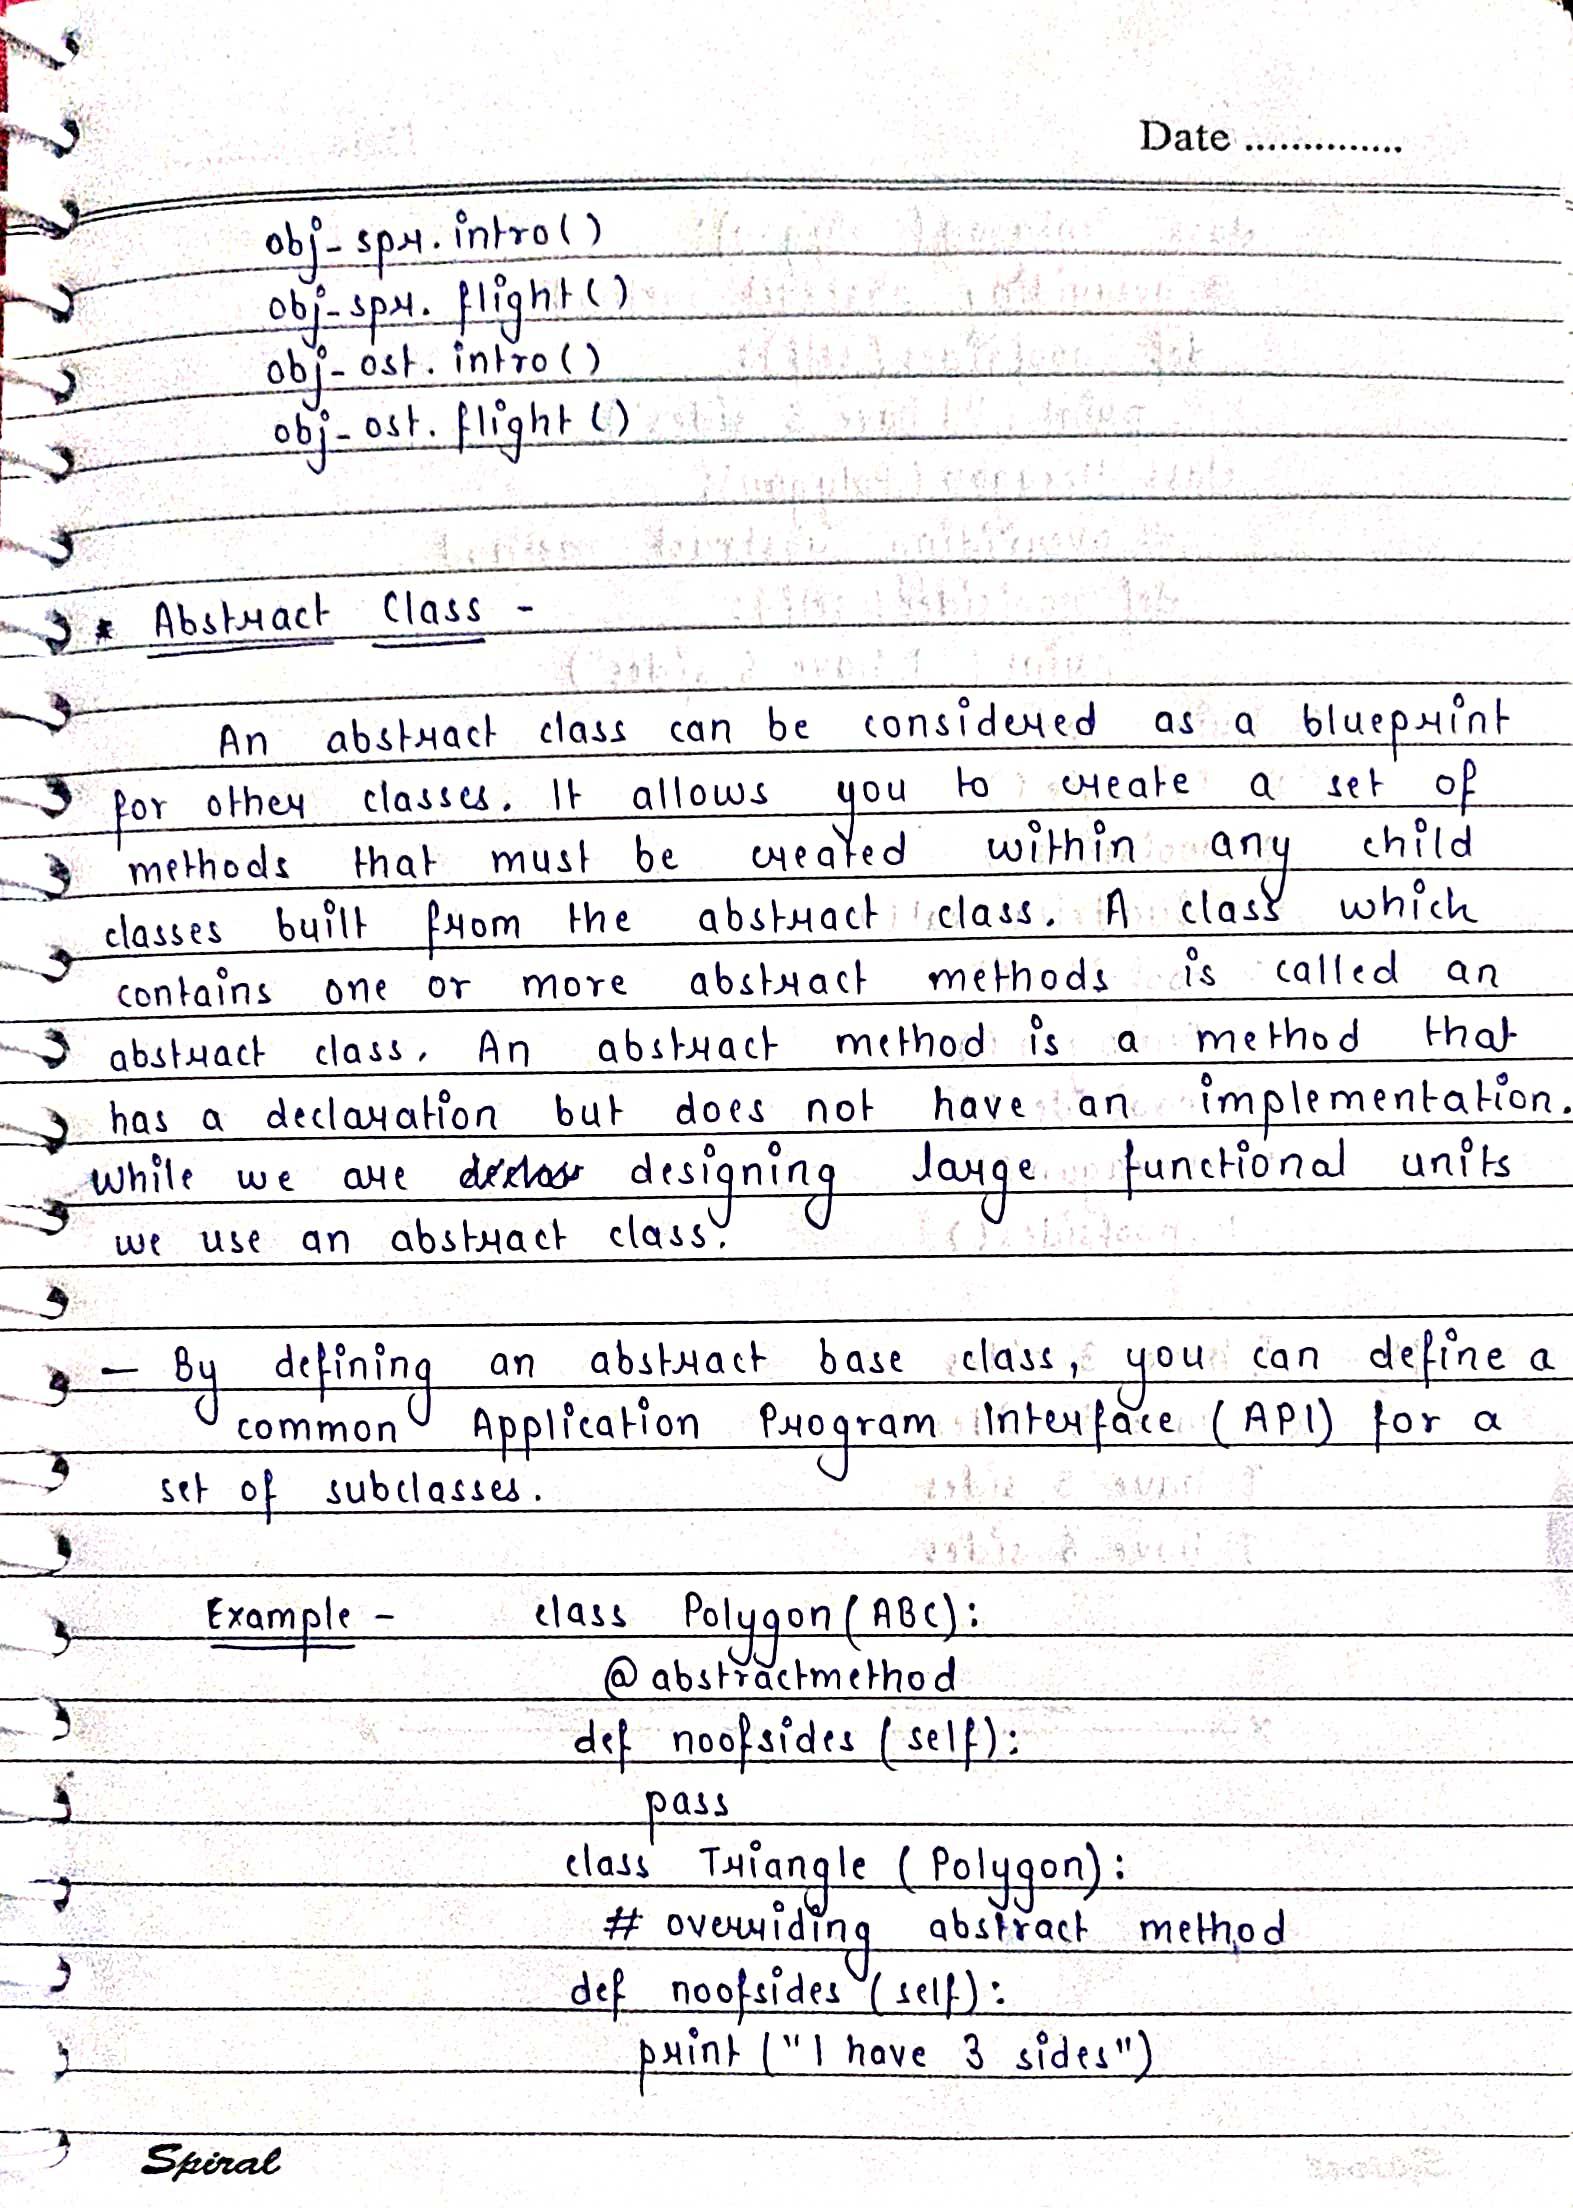 Date ..............
obj-spr.intro()
obj-spr. flight()
obj-ost. intro()
obj-ost. flight()
* Abstract Class -
An abstract class can be considered as a blueprint
for other classes. It allows you to create a set of
methods that must be created within any child
classes built from the abstract class. A class which
contains one or more abstract methods is called an
abstract class. An abstract method is a method that
has a declaration but does not have an implementation.
While we are designing large functional units
we use an abstract class.
- By defining an abstract base class, you can define a
common Application Program Interface (API) for a
set of subclasses.
Example - class Polygon(ABC):
@abstractmethod
def noofsides (self):
pass
class Triangle (Polygon):
# overriding abstract method
def noofsides (self):
print ("I have 3 sides")
Spiral